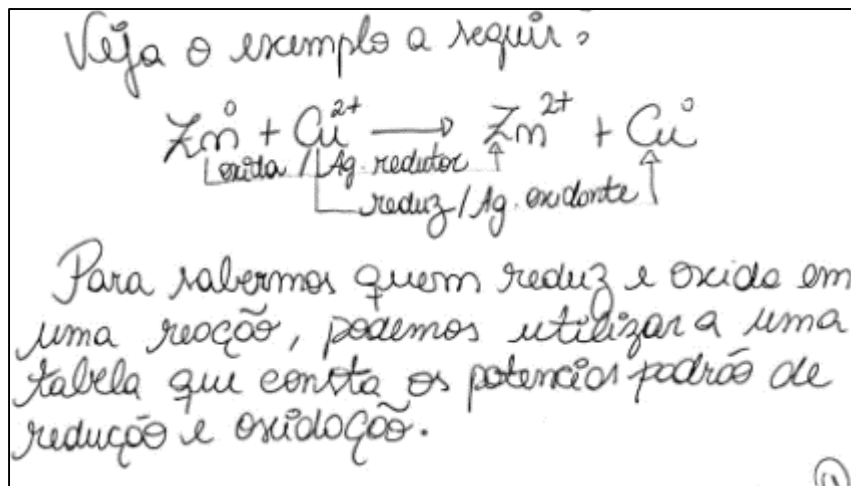 Veja o exemplo a seguir:
Zn⁰ + Cu²⁺ → Zn²⁺ + Cu⁰
oxida / Ag. redutor
reduz / Ag. oxidante
Para sabermos quem reduz e oxida em
uma reação, podemos utilizar a uma
tabela que consta os potenciais padrão de
redução e oxidação.